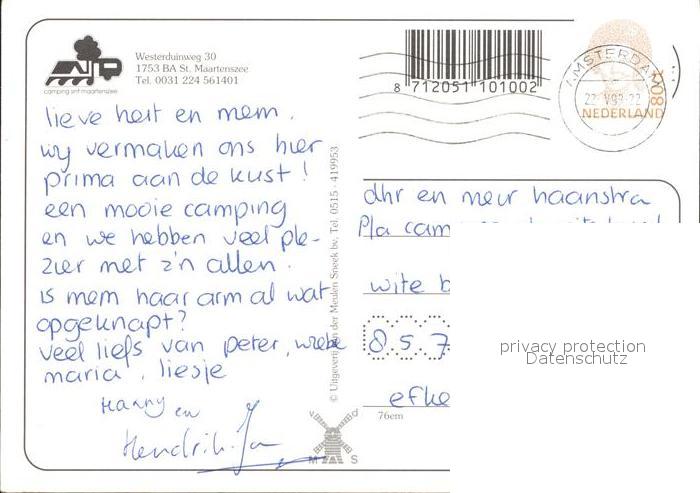 Westerduinweg 30
1753 BA St. Maartenszee
Tel. 0031 224 561401
camping sint maartenszee
8 712051 101002
AMSTERDAM
NEDERLAND
lieve heit en mem.
wy vermaken ons hier
prima aan de kust!
een mooie camping
en we hebben veel ple-
zier met z'n allen.
is mem haar arm al wat
opgeknapt?
veel liefs van peter, wiebe
maria, liesje
Hanny en
Hendrik-Jan
© Uitgeverij van der Meulen Sneek bv, Tel. 0515 - 419953
dhr en mevr haanstra
Pla cam
wite b
8.5.7
efke
76em
M S
privacy protection
Datenschutz